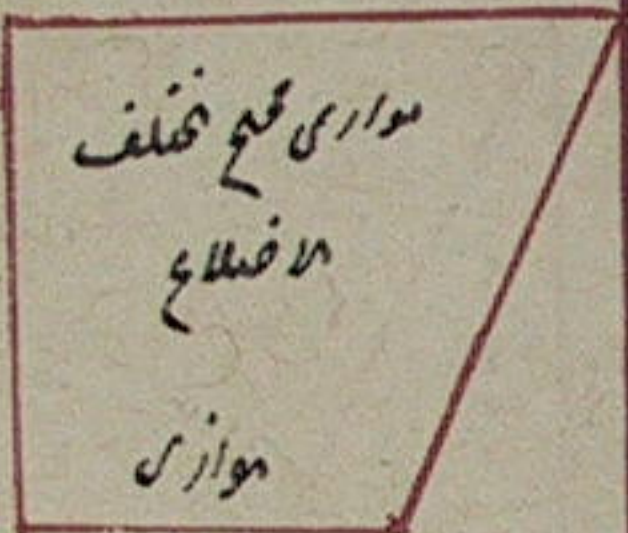 موازی مختلف
الاضلاع
موازی